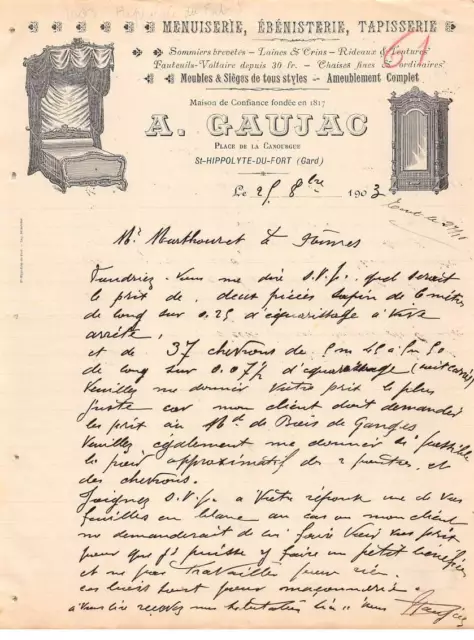 MENUISERIE, ÉBÉNISTERIE, TAPISSERIE
Sommiers brevetés – Laines & Crins – Rideaux & Tentures
Fauteuils-Voltaire depuis 30 fr. – Chaises fines & ordinaires
Meubles & Sièges de tous styles – Ameublement Complet
Maison de Confiance fondée en 1817
A. GAUJAC
PLACE DE LA CANOURGUE
St-HIPPOLYTE-DU-FORT (Gard)
61
Le 25 8bre 1903
Mr Marthouret à
Voudriez-vous me dire S.V.p. quel serait
le prix de deux pièces sapin de 6 mètres
de long sur 0.25 d'équarrissage à vive
arrête,
et de 37 chevrons de 5m 45 à 5m 50
de long sur 0.07½ d'équarrissage (soit carrés)
Veuillez me donner votre prix le plus
juste car mon client doit demander
les prix au Md de Bois de Ganges
Veuillez également me donner si possible
le poids approximatif des 2 poutres et
des chevrons.
Joignez S.V.p. à votre réponse une de vos
feuilles en blanc au cas ou mon client
me demanderait de lui faire voir vos prix
pour que je puisse y faire un petit bénéfice
et ne pas travailler pour rien.
ces bois sont pour maçonnerie.
à vous lire recevez mes salutations
Gaujac